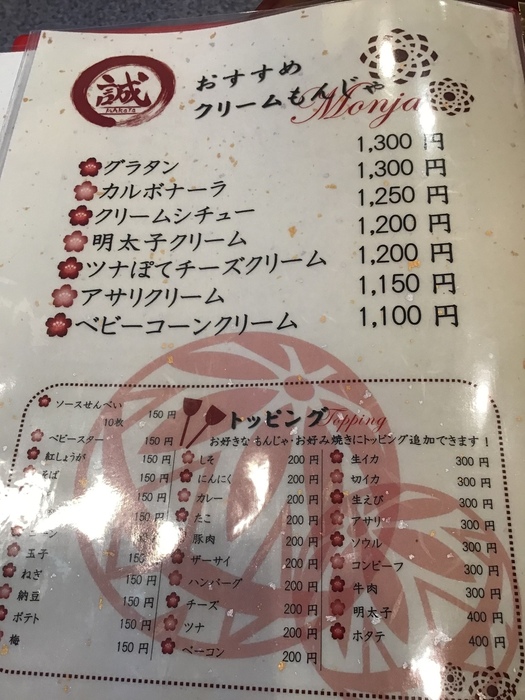 誠
HAKOTO
おすすめ
クリームもんじゃ
Monja
グラタン 1,300 円
カルボナーラ 1,300 円
クリームシチュー 1,250 円
明太子クリーム 1,200 円
ツナぽてチーズクリーム 1,200 円
アサリクリーム 1,150 円
ベビーコーンクリーム 1,100 円
トッピング Topping
お好きな もんじゃ・お好み焼きにトッピング追加できます！
ソースせんべい
10枚 150 円
ベビースター 150 円
紅しょうが 150 円
そば 150 円
150 円
150 円
コーン
玉子 150
ねぎ 150 円
納豆 150 円
ポテト 150 円
梅 150 円
しそ 200 円
にんにく 200 円
カレー 200 円
たこ 200 円
豚肉 200 円
ザーサイ 200 円
ハンバーグ 200 円
チーズ 200 円
ツナ 200 円
ベーコン 200 円
生イカ 300 円
切イカ 300 円
生えび 300 円
アサリ 300 円
ソウル 300 円
コンビーフ 300 円
牛肉 300 円
明太子 400 円
ホタテ 400 円